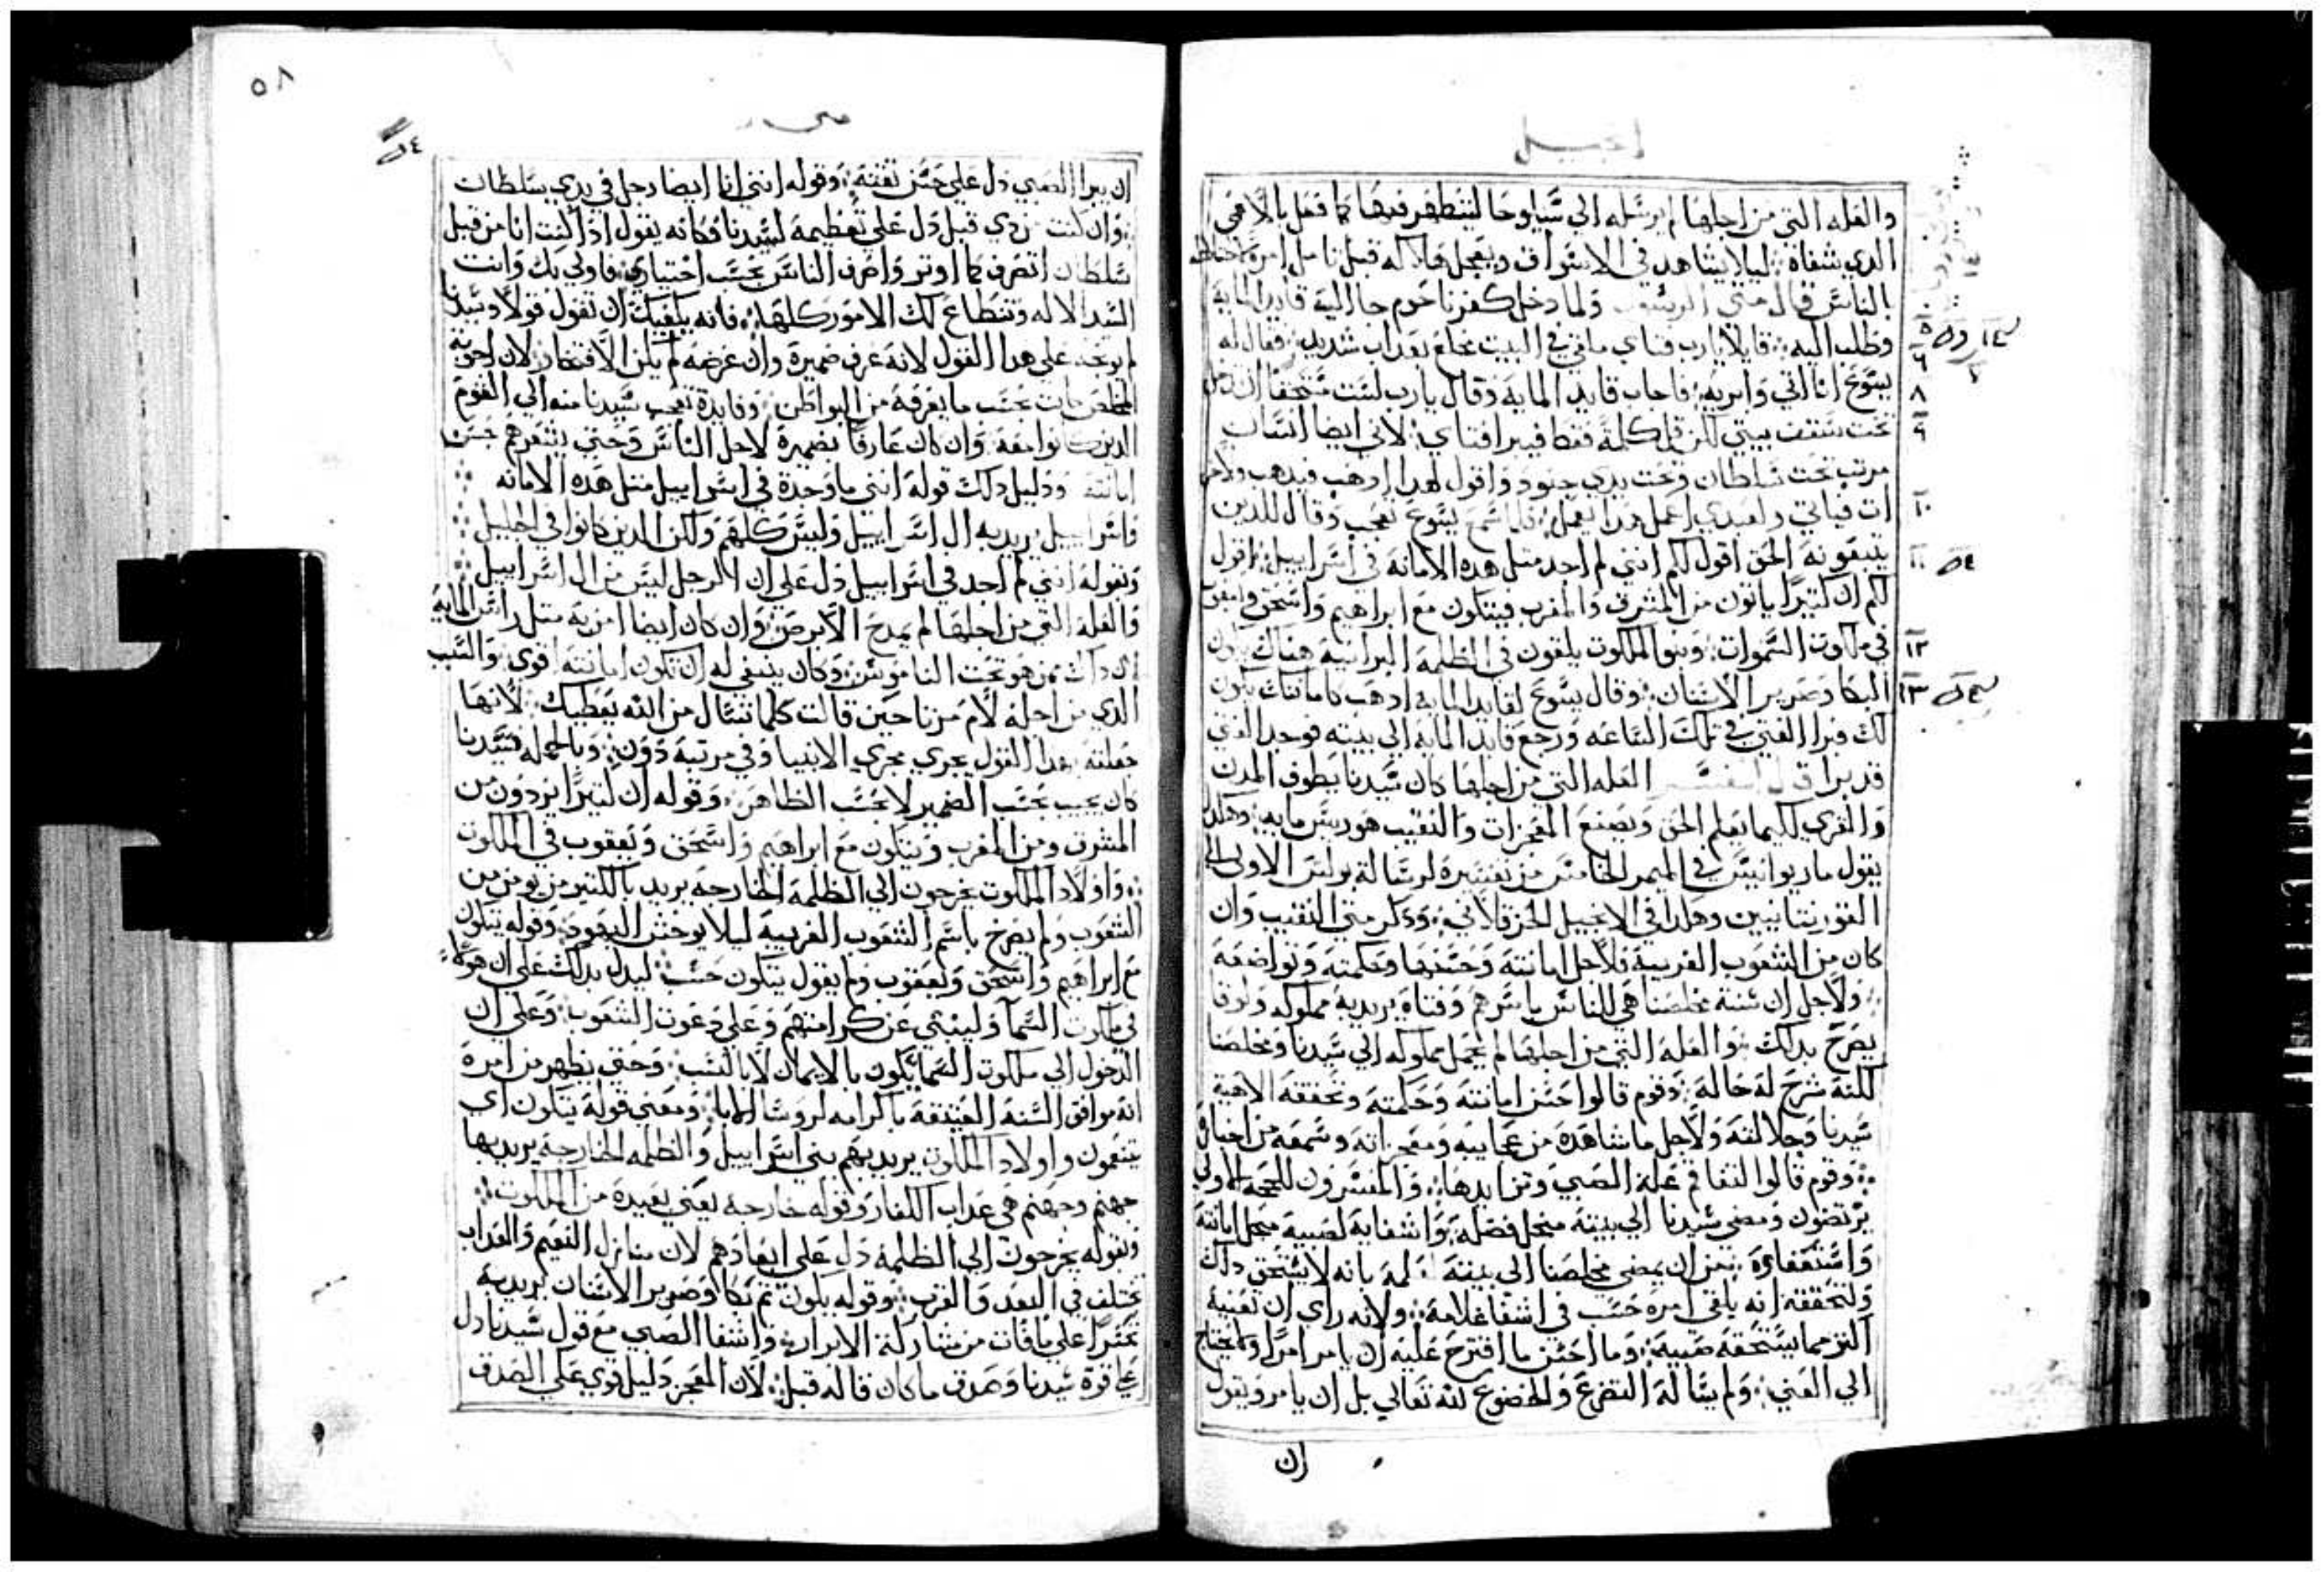 انجيل
والعله التي من اجلها لم يرسله الي شيلوحا ليتطهر فيها كما فعل بالاعمى
الذي شفاه ليلا يشاهد في الاسراف ويعجل قبل تامل امره
الناس قال متى الرسول ولما دخل كفرناحوم جا اليه قايد الماية
وطلب اليه قايلا يارب فتاي ملقي في البيت مخلع بعداب شديد فقال له
يسوع انا اتي وابريه فاجاب قايد الماية وقال يارب لست مستحقا ان تدخل
تحت سقف بيتي لكن قل كلمة فقط فيبرا فتاي لاني ايضا انسان
مرتب تحت سلطان وتحت يدي جنود واقول لهدا ادهب فيدهب ولاخر
ات فياتي ولعبدي اعمل هدا فيعمل فلما سمع يسوع تعجب وقال للدين
يتبعونه الحق اقول لكم انني لم اجد مثل هده الامانة في اسراييل اقول
لكم ان كثيرا ياتون من المشرق والمغرب فيتكون مع ابراهيم واسحق ويعقوب
في ملكوت السموات وبنو الملكوت يلقون في الظلمة البرانية هناك يكون
البكا وصرير الاسنان وقال يسوع لقايد الماية ادهب كامانتك يكون
لك فبرا الفتى في تلك الساعه ورجع قايد الماية الي بيته فوجد الفتي
قد برا قال المفسر العله التي من اجلها كان سيدنا يطوف المدن
والقري لكيما يعلم الحق ويصنع المعجزات والنقيب هو ريس مايه وهكدا
يقول ماريوانيس في الميمر الخامس من تفسيره لرسالة بولس الاولى الي
القورنتانيين وهكدا في الانجيل الحرقلاني ودكر متى النقيب وان
كان من الشعوب الغريبة فلاجل امانته وحسنها وحكمته وتواضعه
ولاجل ان سنة مخلصنا هي للناس باسرهم وفتاه يريد به مملوكه ولوقا
يصرح بدلك والعله التي من اجلها لم يحمل مملوكه الي سيدنا ومخلصنا
لكنه شرح له حاله فقوم قالوا حسن امانته وحكمته وتحققه الاهية
سيدنا وجلالته ولاجل ما شاهده من عجايبه ومعجزاته وسمعه من اخباره
وقوم قالوا لتفاقم علة الصبي وتزايدها والمفسرون للحجة الاولي
يرتضون ومضى سيدنا الي بيته محل فضله واشفايه لصبيه محل امانته
واستعفاوه من ان يمضي مخلصنا الي بيته لعلمه بانه لا يستحق داك
ولتحققه انه ياقي امره حسب في اشفا غلامه ولانه راى ان تعنيه
اكثر مما يستحقه صبيه وما احسن ما اقترح عليه ان يامر امرا ولا يحتاج
الي العني ولم يساله التضرع والخضوع لله تعالي بل ان يامر ويقول
ان
٥
٦
٨
٩
١٠
١١
١٢
١٣
٥٨
متى
ان يبرا الصبي دل علي حسن ثقته وقوله انني انا ايضا رجل في يدي سلطان
وان كنت من دي قبل دل علي تعظيمه لسيدنا فكانه يقول ادا كنت انا من قبل
سلطان اتصرف كما اوثر واصرف الناس بحسب اختياري فاولي بك وانت
السيد الاله وتنطاع لك الامور كلها فانه يكفيك ان تقول قولا وسيدنا
لم يوبخه علي هدا القول لانه عرف ضميره وان غرضه لم يكن الافتخار لان اجوبة
المخلص كانت بحسب ما يعرفه من البواطن وفايدة تعجب سيدنا منه الي القوم
الدين كانوا معه وان كان عارفا بضميره لاجل الناس وحتى يشعرهم حسن
امانته ودليل دلك قوله انني ما وجدت في اسراييل مثل هده الامانه
واسراييل يريد به ال اسراييل وليس كلهم ولكن الدين كانوا في الجليل
وبقوله انني لم اجد في اسراييل دل علي ان الرجل ليس من ال اسراييل
والعله التي من اجلها لم يمدح الابرص وان كان ايضا امن به مثل راس الماية
ان داك ممن هو تحت الناموس وكان ينبغي له ان تكون امانته اقوي والسبب
الدي من اجله لام مرتا حين قالت كلما تسال من الله يعطيك لانها
جعلته بهدا القول يجري مجري الانبيا وفي مرتبة دون وبالجمله فسيدنا
كان يجيب بحسب الضمير لا بحسب الظاهر وقوله ان كثيرا يردون من
المشرق ومن المغرب ويتكون مع ابراهيم واسحق ويعقوب في الملكوت
واولاد الملكوت يخرجون الي الظلمة الخارجة يريد بالكثير من يومن من
الشعوب ولم يصرح باسم الشعوب الغريبة ليلا يوحش اليهود وقوله يتكون
مع ابراهيم واسحق ويعقوب ولم يقول يتكون حسب ليدل بدلك على ان هولاء
في ملكوت السما ولينبي عن كرامتهم وعلي دعوت الشعوب وعلي ان
الدخول الي ملكوت السما يكون بالايمان لا بالنسب وحتى يظهر من امره
انه موافق السنة العتيقة باكرامه لروسا الابا ومعنى قوله يتكون اي
يتنعمون واولاد الملكوت يريد بهم بني اسراييل والظلمه الخارجة يريد بها
جهنم وجهنم هي عداب الكفار وقوله خارجه يعني بعيدة من الملكوت
وبقوله يخرجون الي الظلمة دل علي ابعادهم لان منازل النعيم والعداب
تختلف في البعد والقرب وقوله يكون ثم بكا وصرير الاسنان يريد به
تحسرا علي ما فات من مشاركة الابرار واشفا الصبي مع قول سيدنا دل
علي قوة سيدنا وصدق ما كان قاله قبل لان المعجز دليل قوي علي الصدق